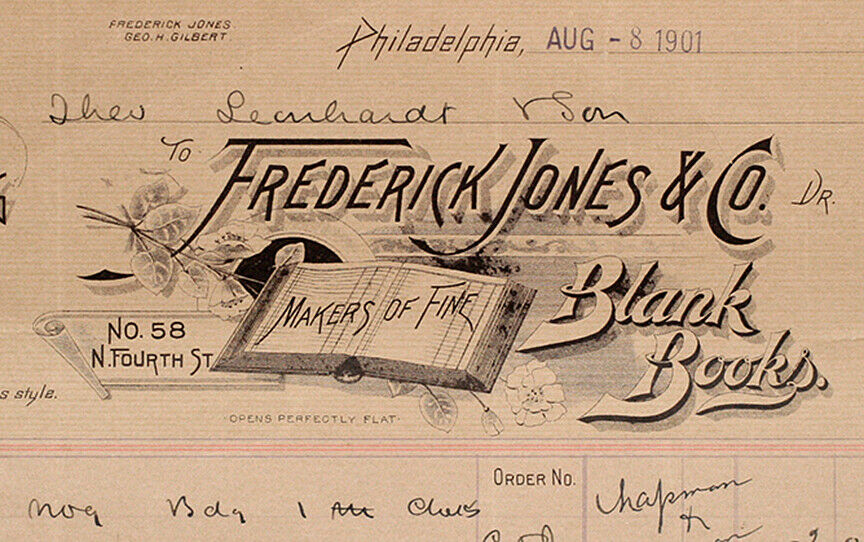 FREDERICK JONES.
GEO. H. GILBERT
Philadelphia, AUG - 8 1901
Theo Leonhardt & Son
To FREDERICK JONES & CO. DR.
MAKERS OF FINE
Blank
Books.
NO. 58
N. FOURTH ST.
s style.
OPENS PERFECTLY FLAT
ORDER NO. Chapman
Bdg 1